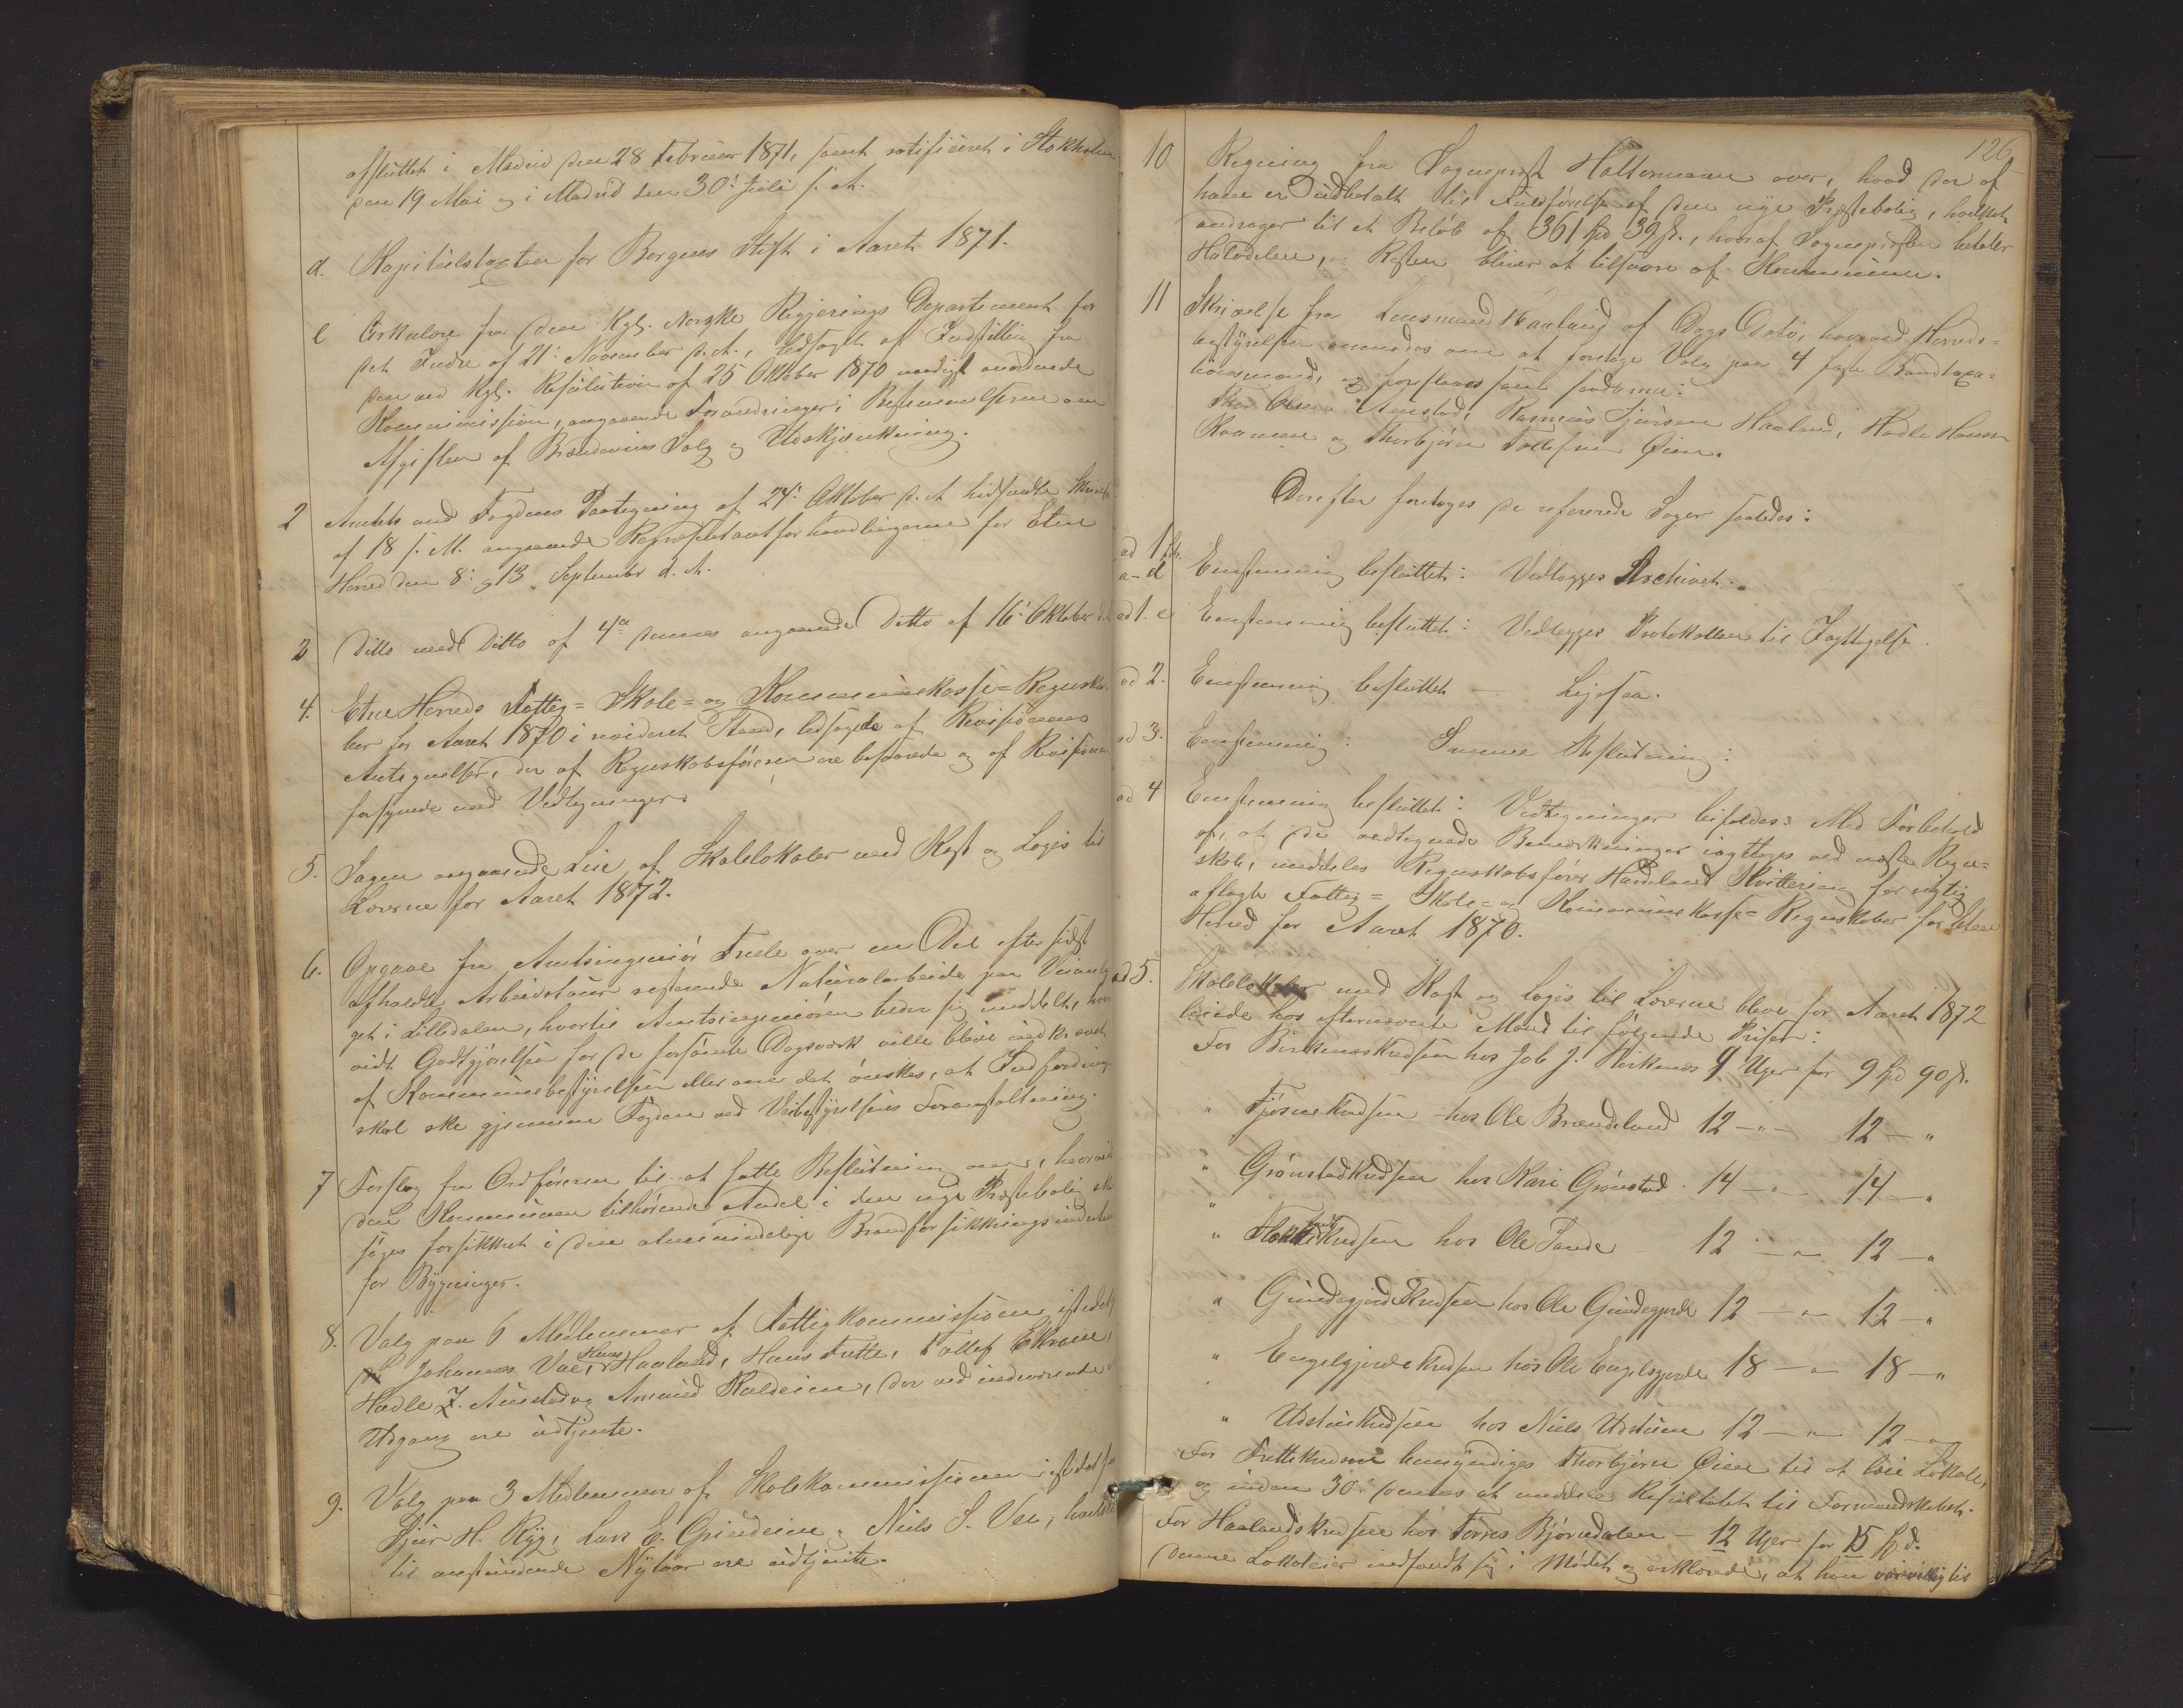 afsluttet i Madrid den 28 Februar 1871, samt ratificeret i Stokholm
den 19 Mai og i Madrid den 30' Juli s. A.
d. Kapitelstaxten for Bergens Stift i Aaret 1871.
e Cirkulære fra den Kgl. Norske Regjerings Departement for
det Indre af 21' November d. A., ledsaget af Indstilling fra
den ved Kgl. Resolution af 25 Oktober 1870 naadigst anordnede
Kommission, angaaende Forandringer i Bestemmelserne om
Afgiften af Brændevins Salg og Udskjænkning.
2 Amtets med Fogdens Paategning af 24' Oktober d. A hidsendte Skrivelse
af 18 s. M. angaaende Repræsentantforhandlingerne for Etne
Herred den 8' og 13 September d. A.
3 Ditto med Ditto af 4de dennes angaaende Ditto af 16' Oktober d.
4. Etne Herreds Fattig= Skole= og Kommunekasse= Regnska-
ber for Aaret 1870 i revideret Stand, ledsagede af Revisionens
Antegnelser, der af Regnskabsføreren ere besvarede og af Revisionen
forsynede med Vedtegninger.
5. Sagen angaaende Leie af Skolelokaler med Kost og Logis til
Lærerne for Aaret 1872.
6. Opgave fra Amtsingeniør Friele over en Del efter sidst
afholdte Arbeidstour resterende Naturalarbeide paa Veianlæg-
get i Lilledalen, hvortil Amtsingeniøren beder sig meddelt, hvor-
vidt Godtgjørelsen for de forsømte Dagsværk ville blive indkrævet
af Kommunebestyrelsen eller om det ønskes, at Indfordringen
skal ske gjennem Fogden ved Veibestyrelsens Foranstaltning.
7 Forslag fra Ordføreren til at fatte Beslutning om, hvorvidt
den Kommunen tilhørende Andel i den nye Præstebolig skal
søges forsikkret i den almindelige Brandforsikkringsindretning
for Bygninger.
8. Valg paa 6 Medlemmer af Fattigkommissionen istedetfor
Johannes Vae, Hans Haaland, Hans Frette, Tollef Ekrene,
Hadle J. Austad og Amund Kaldeim, der ved indeværende
Udgang ere udtjente.
9. Valg paa 3 Medlemmer af Skolekommissionen istedetfor
Sjur H. Ryg, Lars E. Grindeim og Niels S. Vee, hvilke
til anstundende Nytaar ere udtjente.
126
10 Regning fra Sogneprest Haltermann over, hvad der af
ham er udbetalt til Fuldførelse af den nye Præstebolig, hvilket
andrager til et Beløb af 361 Spd 39 s., hvoraf Sognepresten betaler
Halvdelen, Resten bliver at tilsvare af Kommunen.
11 Skrivelse fra Lensmand Haaland af Dags Dato, hvorved Herreds=
bestyrelsen anmodes om at foretage Valg paa 4 faste Brandtaxa=
tionsmænd, og foreslaaes som saadanne:
Thor Olsen Austad, Rasmus Sjursen Haaland, Hadle Hansen
Kaarnen og Thorbjørn Tollefsen Øien.
Derefter foretoges de refererede Sager saaledes:
ad 1 Litr.
a–d Eenstemmig besluttet: Vedlægges Archivet.
ad 1. e Eenstemmig besluttet: Vedlægges Protokollen til Iagttagelse.
ad 2. Eenstemmig besluttet – Ligesaa.
ad 3. Eenstemmig: Samme Beslutning:
ad 4 Eenstemmig besluttet: Vedtegninger bifaldes: Med Forbehold
af, at de vedtegnede Bemærkninger iagttages ved næste Regn=
skab, meddeles Regnskabsfører Haaland Kvittering for rigtig
aflagte Fattig= Skole= og Kommunekasse= Regnskaber for Etne
Herred for Aaret 1870.
ad 5. Skolelokaler med Kost og Logis til Lærerne bleve for Aaret 1872
leiede hos efternævnte Mænd til følgende Priser:
For Birkenæskredsen hos Job J. Birkenæs 9 Uger for 9 Spd 90 s.
" Fjøsnekredsen hos Ole Brændeland 12 –"– 12 – "
" Grønstadkredsen hos Kari Grønstad 14 –"– 14 – "
" kredsen hos Ole Sande 12 –"– 12 – "
" Gundegjerdekredsen hos Ole Gundegjerde 12 –"– 12 – "
" Engelgjerdekredsen hos Ole Engelsgjerde 18 –"– 18 – "
" Udstuekredsen hos Niels Udstuen 12 –"– 12 – "
For Frettekredsen bemyndiges Thorbjørn Øien til at leie Lokale,
og inden 30' dennes at meddele Resultatet til Formandskabet.
For Haalandskredsen hos Torres Bjørndalen – 12 Uger for 15 Spd.
Denne Lokaleier indfandt sig i Mødet og erklærede, at han var villig til